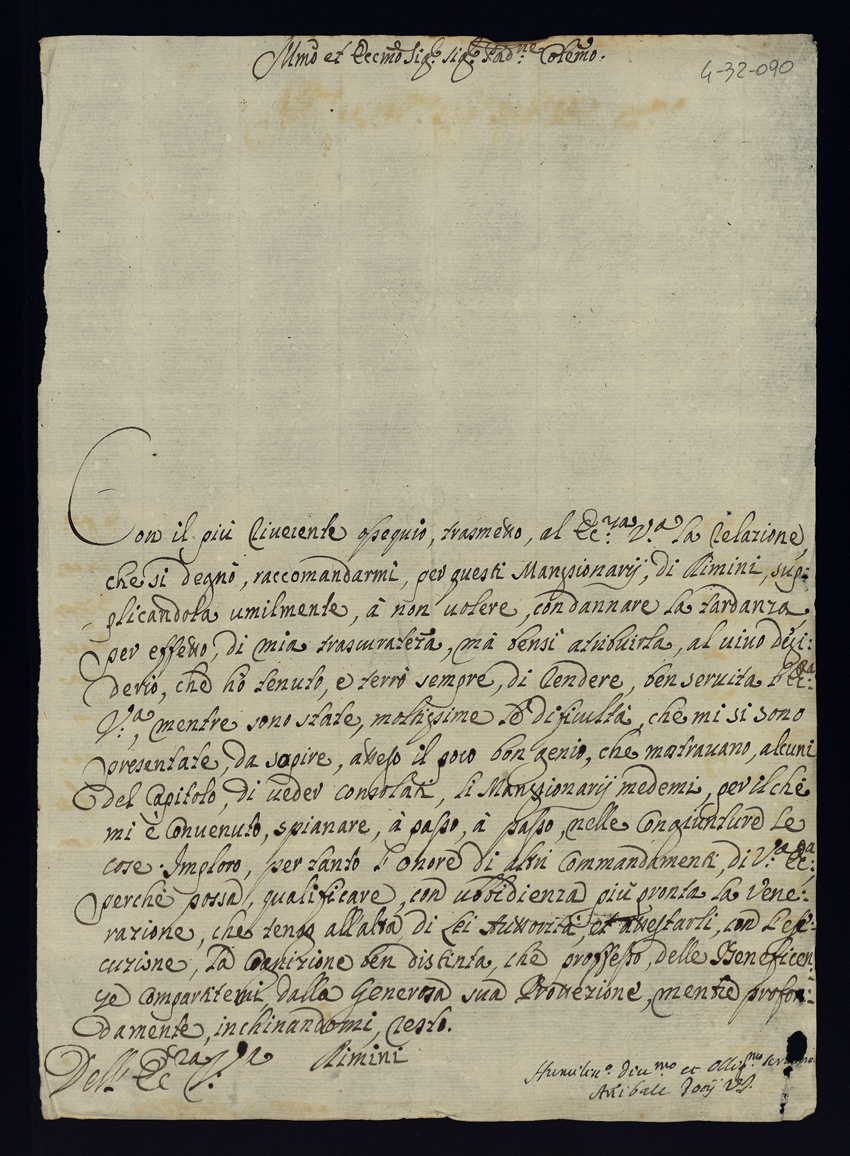 Illmo et Eccmo Sigr. Sigr. Padne. Colemo.
4-32-090
Con il più riverente ossequio, trasmetto, al Ecc.za V.a la relazione,
che si degnò, raccomandarmi, per questi Mansionarij, di Rimini, sup-
plicandola umilmente, à non uolere, condannare la tardanza
per effetto, di mia trascurateza, mà bensi atribuirla, al uiuo desi-
derio, che hò tenuto, e terrò sempre, di rendere, ben seruita l'Ecc.za
V.a, mentre sono state, moltissime le dificultà, che mi si sono
presentate, da sopire, atteso il poco bon genio, che mostrauano, alcuni
del Capitolo, di ueder consolati, li Mansionarij medemi, per il che
mi è conuenuto, spianare, à passo, à passo, nelle congiunture le
cose. Imploro, per tanto l'onore di altri Commandamenti, di V.a Ecc.za
perche possa, qualificare, con ubbidienza più pronta la Vene-
razione, che tengo all'alta, di Lei Auttorità, et attestarli, con l'ese-
cuzione, la Cognizione ben distinta, che professo, delle Beneficen-
ze compartitemi dalla Generosa sua Protezione, mentre profon-
damente, inchinandomi, resto.
Dell' Ecc.za V.a Rimini
Humiliss.o diu.mo et Oblig.mo seruitore
Anibale